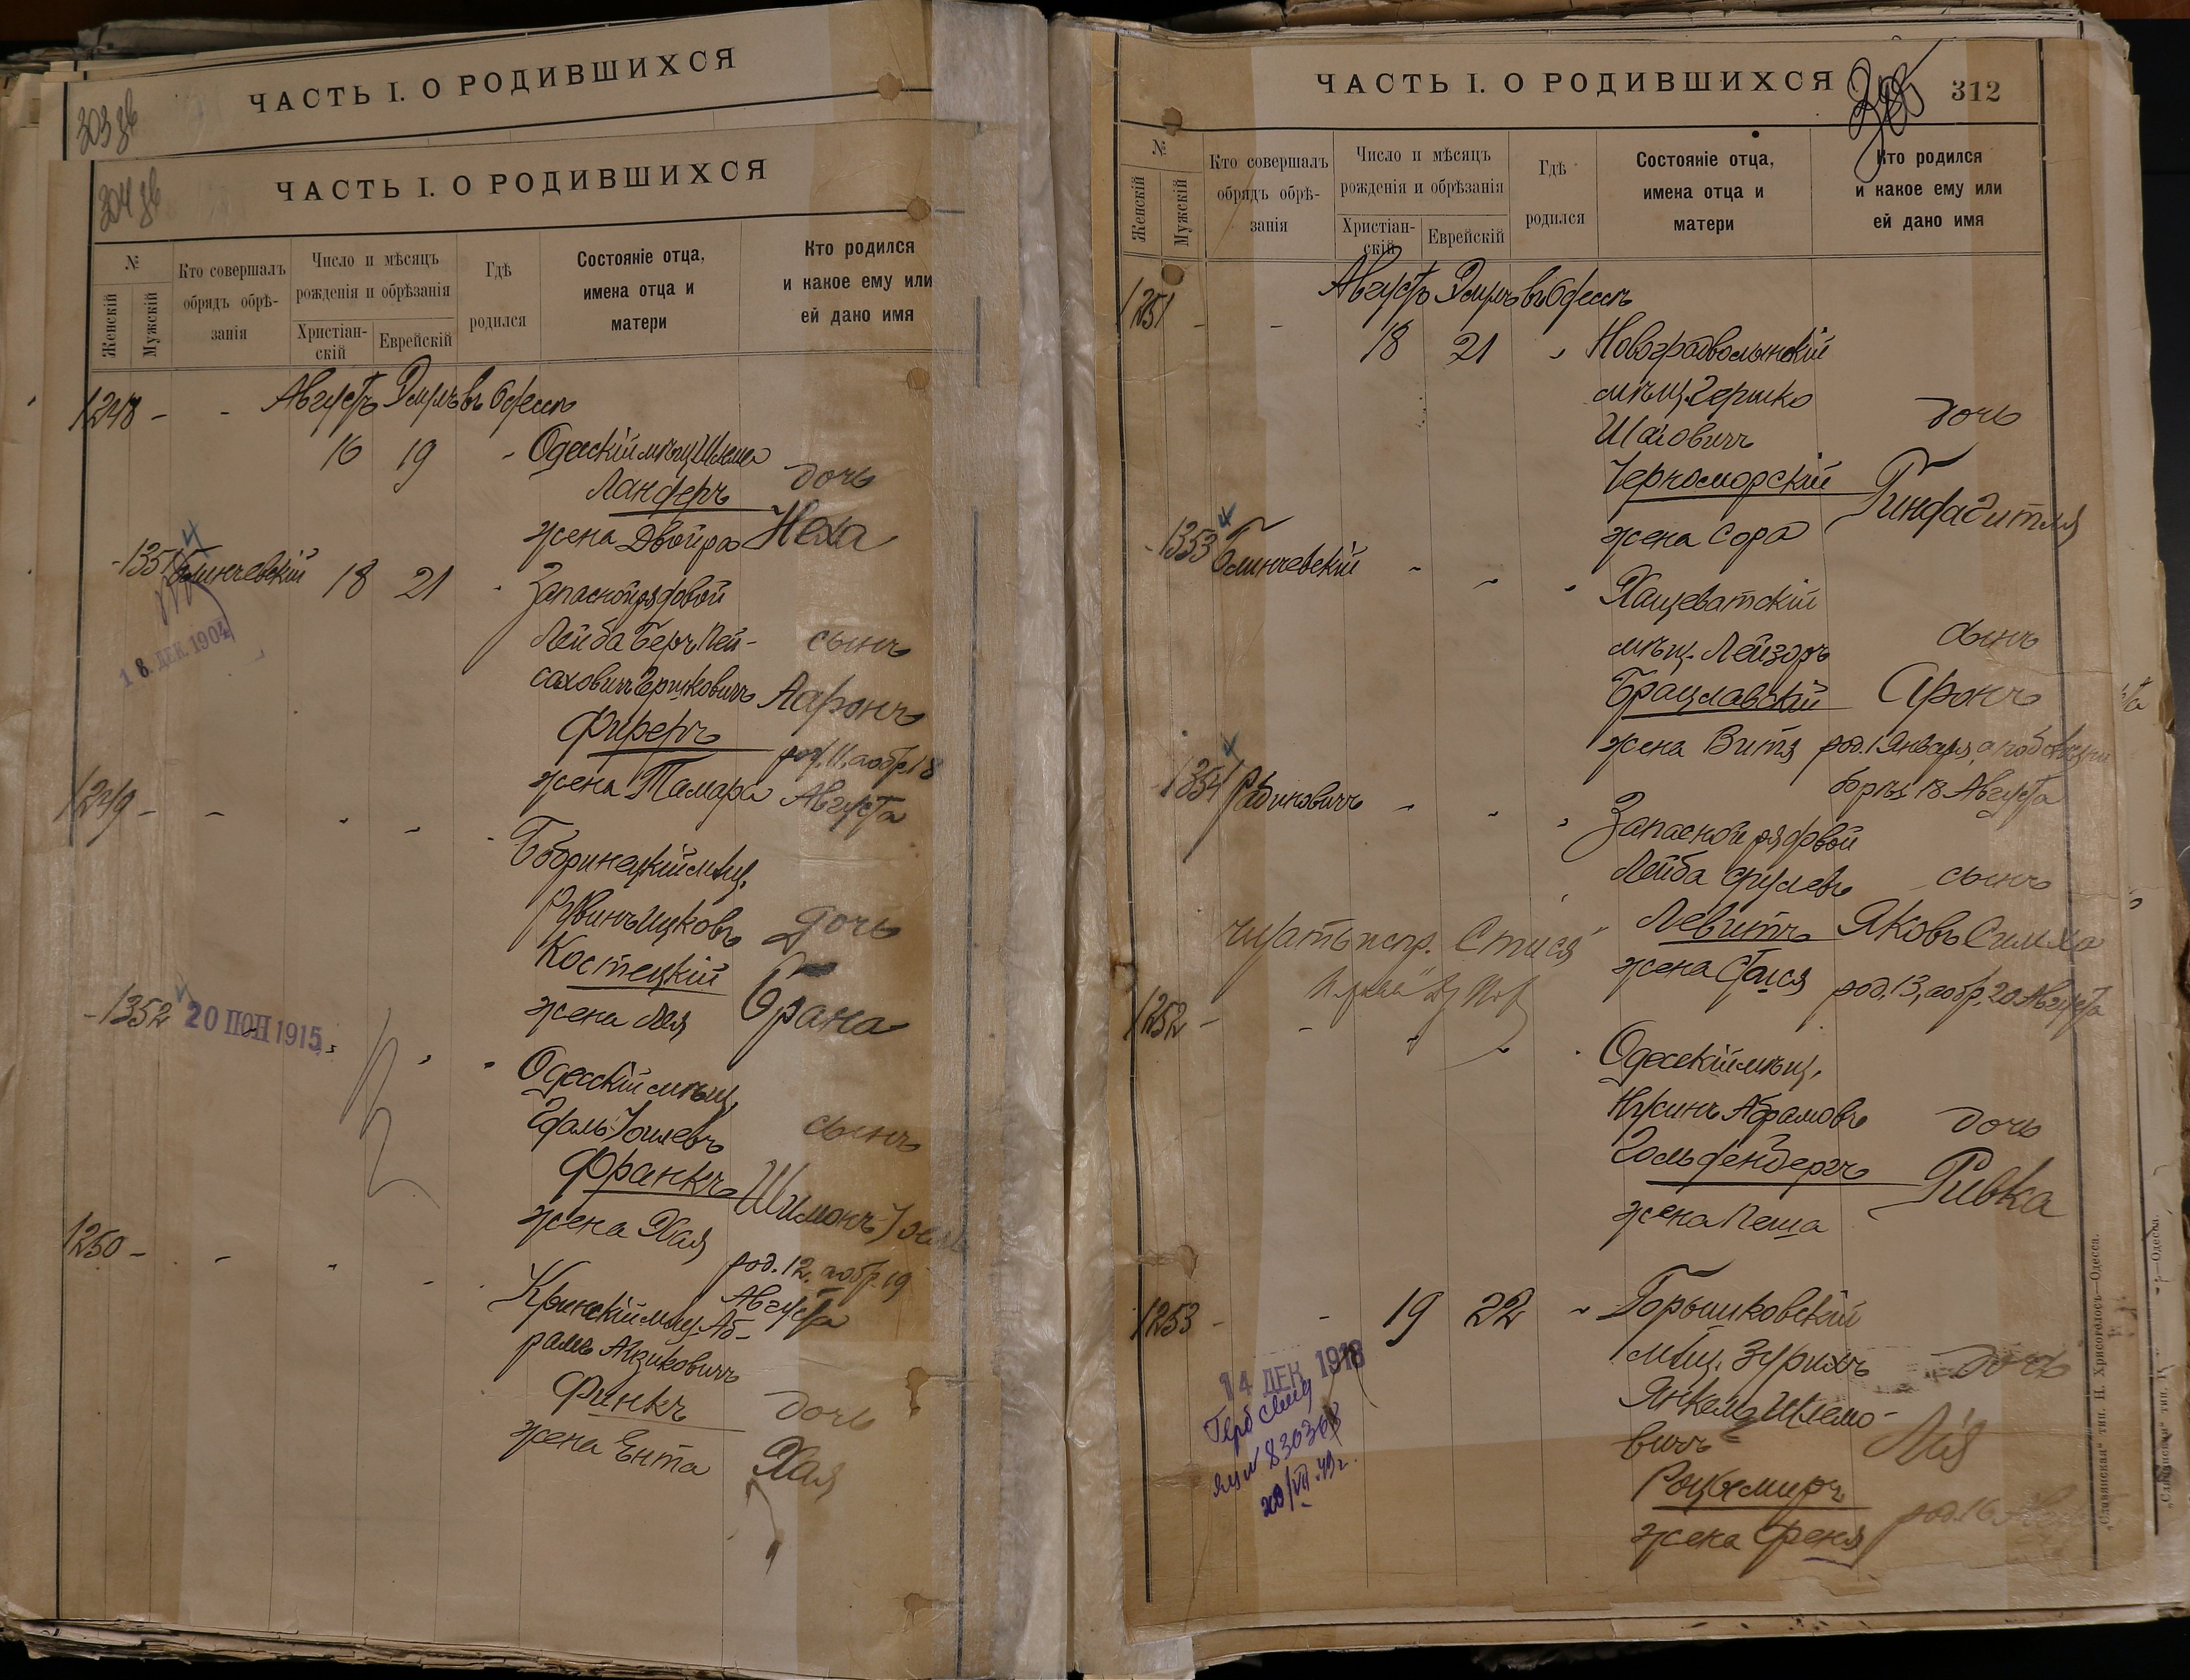 303 зв
ЧАСТЬ I. О РОДИВШИХСЯ
304 зв
ЧАСТЬ I. О РОДИВШИХСЯ
№
Женскій
Мужскій
Кто совершалъ
обрядъ обрѣ-
занія
Число и мѣсяцъ
рожденія и обрѣзанія
Христіан-
скій
Еврейскій
Гдѣ
родился
Состояніе отца,
имена отца и
матери
Кто родился
и какое ему или
ей дано имя
1248 - - Августъ Элулъ въ Одессѣ
16 19 Одесскій мѣщ. Шлема
Ландеръ дочь
жена Двойра Неха
1351 Блинчевскій 18 21 Запасной рядовой
18 ДЕК. 1904
Лейба Беръ Пей- сынъ
саховичъ Гершковичъ Ааронъ
Фиреръ род. 11, а обр. 18
жена Тамара Августа
1249 - - Бобринецкій мѣщ.
Рувинъ Ицковъ дочь
Костецкій
жена Лея Брана
1352 20 ІЮН 1915
Одесскій мѣщ.
сынъ
Франкъ Шимонъ
жена Хая род. 12, а обр. 19
Августа
1250 - - мѣщ. Аб-
рамъ Айзиковичъ
Финкъ дочь
жена Ента Хая
ЧАСТЬ I. О РОДИВШИХСЯ
305 312
№
Женскій
Мужскій
Кто совершалъ
обрядъ обрѣ-
занія
Число и мѣсяцъ
рожденія и обрѣзанія
Христіан-
скій
Еврейскій
Гдѣ
родился
Состояніе отца,
имена отца и
матери
Кто родился
и какое ему или
ей дано имя
1251 - - Августъ Элулъ въ Одессѣ
18 21 Новоградволынскій
мѣщ. Гершко
дочь
Черноморскій
жена Сора
1353 Блинчевскій Хащеватскій
мѣщ. Лейзоръ сынъ
Брацлавскій Аронъ
жена Витя род. 1 Января, а
18 Августа
1354 Рабиновичъ Запасной рядовой
Лейба Срулевъ сынъ
Левитъ Яковъ Симха
читать испр. Стися
жена Стися род. 13, а обр. 20 Августа
1252 - - Одесскій мѣщ.
Нусинъ Абрамовъ дочь
Гольденбергъ Ривка
жена Песша
1253 - - 19 22 Горышковскій
14 ДЕК 1918
мѣщ. Зурихъ дочь
Янкель Шлемо-
вичъ Лія
жена Френя род. 16
Герб свид
№ 830368
20/VII 49 г.
„Славянская" тип. Н. Хрисогелосъ—Одесса.